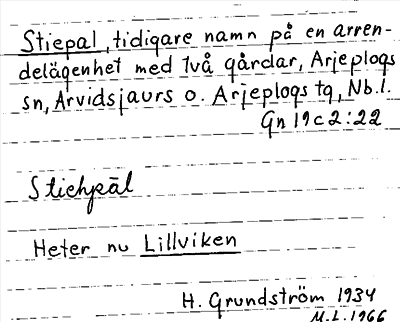 Stiepal, tidigare namn på en arren-
delägenhet med två gårdar, Arjeplogs
sn, Arvidsjaurs o. Arjeplogs tg, Nb.l.
Gn 19c2:22
Stiehpāl
Heter nu Lillviken
H. Grundström 1934
M.L. 1966